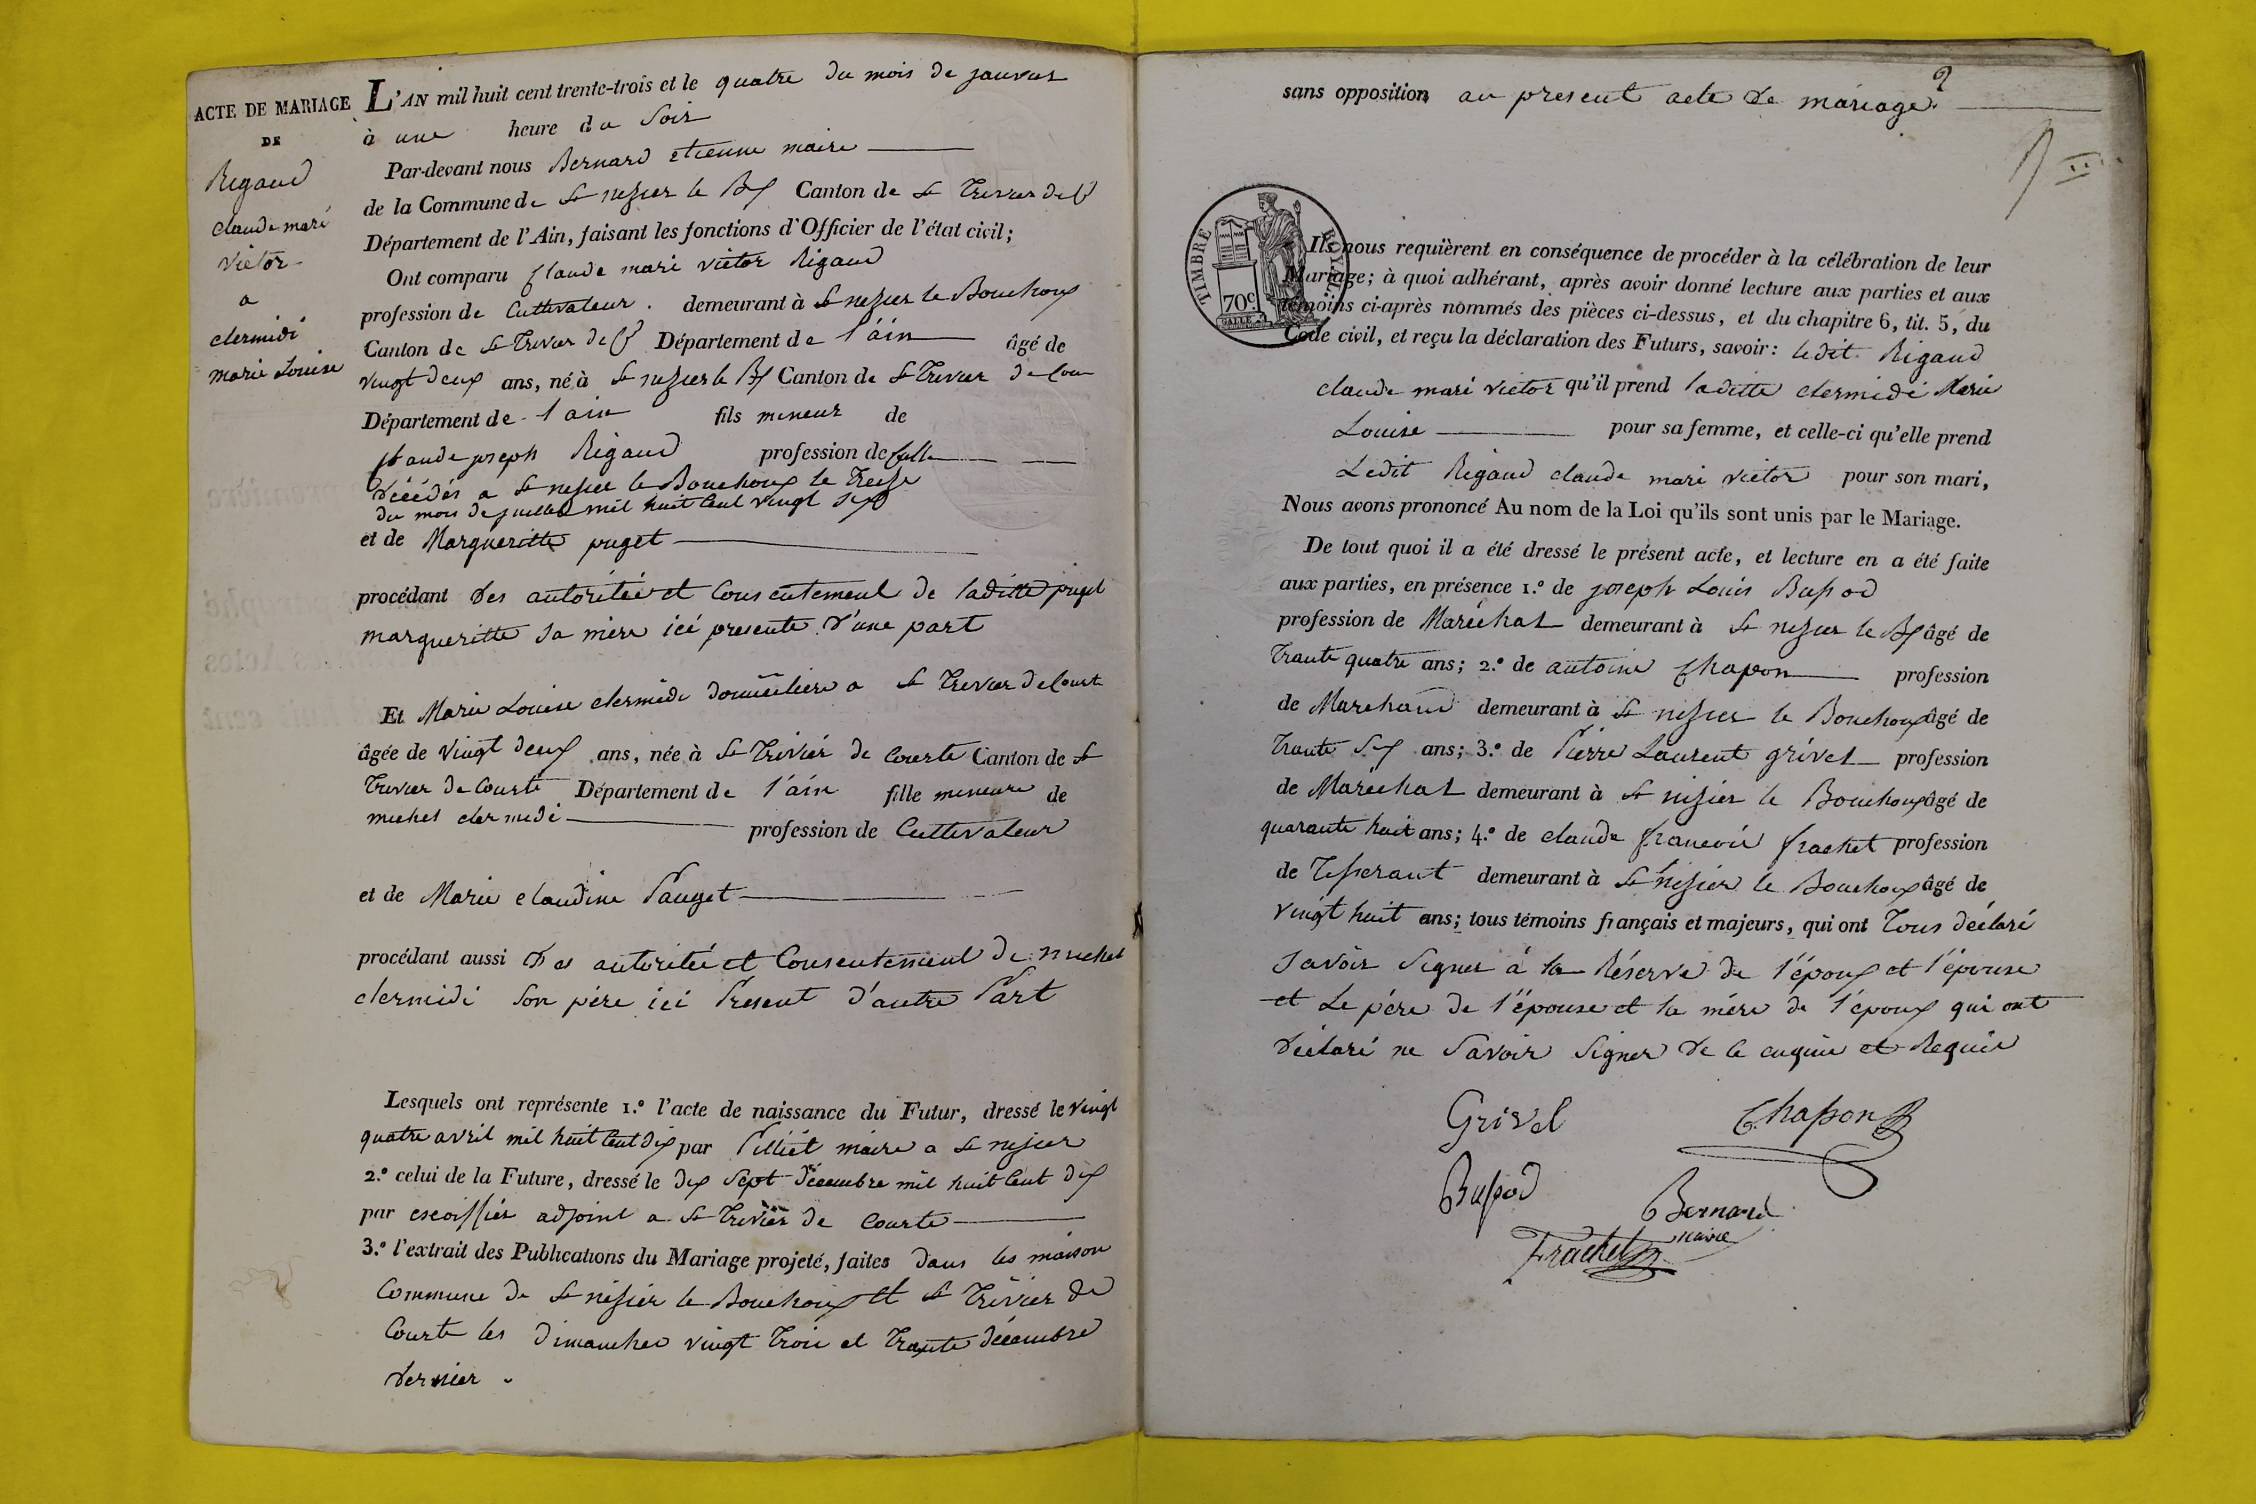 ACTE DE MARIAGE
DE
Rigaud
claude marí
victor
a
clermidi
marie Louise
L'AN mil huit cent trente-trois et le quatre du mois de janvier
à une heure du Soir
Par-devant nous Bernard etienne maire
de la Commune de St nizier le Bx Canton de St Trivier de Ct
Département de l'Ain, faisant les fonctions d'Officier de l'état civil;
Ont comparu Claude mari victor Rigaud
profession de Cultivateur. demeurant à St nizier le Bouchoux
Canton de St Trivier de Ct Département de l'áin âgé de
vingt deux ans, né à St nizier le Bx Canton de St Trivier de Cou
Département de l'ain fils mineur de
Claude joseph Rigaud profession de Culte
décédés a St nizier le Bouchoux le Treize
du mois de juillet mil huit Cent vingt sept
et de Margueritte puget
procédant des autoritée et Consentement de laditte puget
margueritte sa mère ici presente d'une part
Et Marie Louise clermidi domicilière a St Trivier de Courte
âgée de vingt deux ans, née à St Trivier de Courte Canton de St
Trivier de Courte Département de l'áin fille mineure de
michel clermidi profession de Cultivateur
et de Marie claudine Pauget
procédant aussi des autoritée et Consentement de michel
clermidi son pére ici Présent d'autre Part
Lesquels ont représente 1.º l'acte de naissance du Futur, dressé le vingt
quatre avril mil huit Cent dix par Pilliet maire a St nizier
2.º celui de la Future, dressé le dix Sept décembre mil huit Cent dix
par escoiffier adjoint a St Trivier de Courte
3.º l'extrait des Publications du Mariage projeté, faites dans les maison
Commune de St nizier le Bouchoux et St Trivier de
Courte les dimanches vingt Trois et Trente décembre
dernier.
2
sans opposition au present acte de mariage.
TIMBRE ROYAL
70c
Ils nous requièrent en conséquence de procéder à la célébration de leur
Mariage; à quoi adhérant, après avoir donné lecture aux parties et aux
témoins ci-après nommés des pièces ci-dessus, et du chapitre 6, tit. 5, du
Code civil, et reçu la déclaration des Futurs, savoir: ledit Rigaud
claude mari victor qu'il prend laditte clermidi Marie
Louise pour sa femme, et celle-ci qu'elle prend
Ledit Rigaud claude mari victor pour son mari,
Nous avons prononcé Au nom de la Loi qu'ils sont unis par le Mariage.
De tout quoi il a été dressé le présent acte, et lecture en a été faite
aux parties, en présence 1.º de joseph Louis Bussod
profession de Maréchal demeurant à St nizier le Bx âgé de
Trante quatre ans; 2.º de antoine Chapon profession
de Marchand demeurant à St nizier le Bouchoux âgé de
Trante Six ans; 3.º de Pierre Laurent grivel profession
de Maréchal demeurant à St nizier le Bouchoux âgé de
quarante huit ans; 4.º de claude francois frachet profession
de Tisserant demeurant à St nizier le Bouchoux âgé de
vingt huit ans; tous témoins français et majeurs, qui ont Tous déclaré
savoir Signer à la Réserve de l'époux et l'épouse
et Le pére de l'épouse et la mère de l'époux qui ont
déclaré ne Savoir Signer de ce enquie et Requie
Grivel Chapon
Bussod Bernard
maire
Frachet